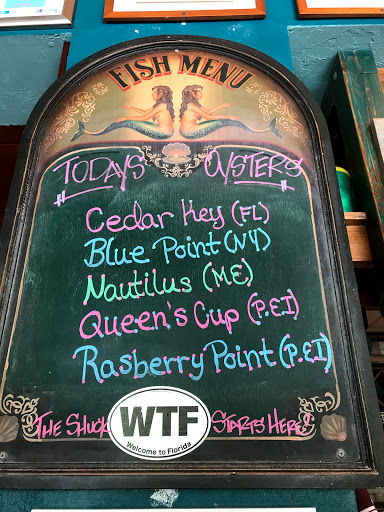 FISH MENU
TODAYS OYSTERS
Cedar Key (FL)
Blue Point (NY)
Nautilus (ME)
Queen's Cup (P.E.I)
Rasberry Point (P.E.I)
THE SHUCK STARTS HERE!
WTF
Welcome to Florida